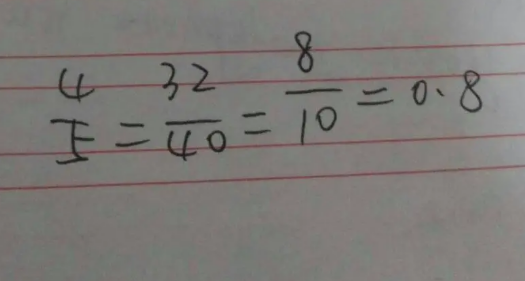 4/5 = 32/40 = 8/10 = 0.8